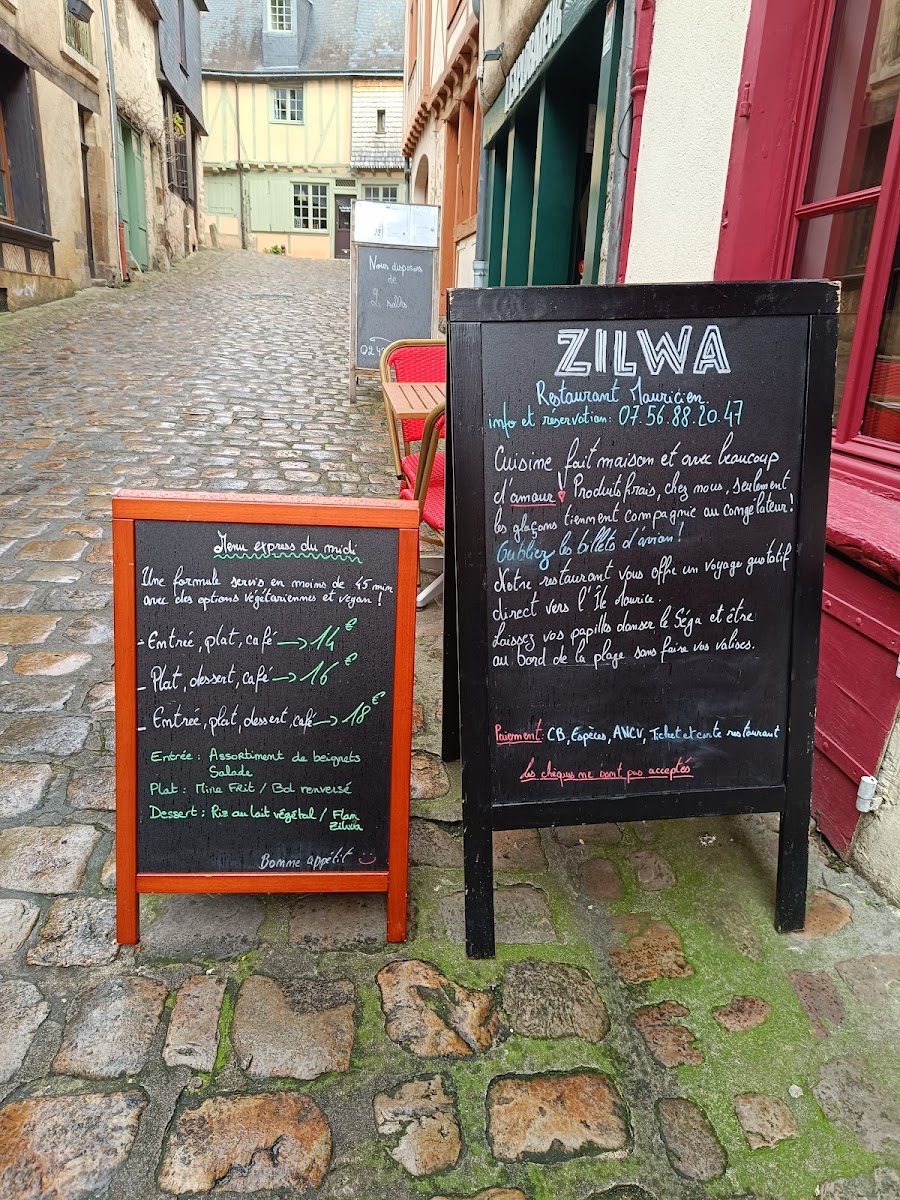 Nous disposons
de
2 salles
ZILWA
Restaurant Mauricien.
info et réservation: 07.56.88.20.47
Cuisine fait maison et avec beaucoup
d'amour. Produits frais, chez nous, seulement
les glaçons tiennent compagnie au congelateur!
Oubliez les billets d'avion!
Notre restaurant vous offre un voyage gustatif
direct vers l'Île Maurice.
Laissez vos papilles danser le Séga et être
au bord de la plage sans faire vos valises.
Paiement: CB, Espèces, ANCV, Ticket et carte restaurant
Les chèques ne sont pas acceptés
Menu express du midi
Une formule servis en moins de 45 min
avec des options végétariennes et vegan!
- Entrée, plat, café → 14€
- Plat, dessert, café → 16€
- Entrée, plat, dessert, café → 18€
Entrée : Assortiment de beignets
Salade
Plat : Mine Frit / Bol renversé
Dessert : Riz au lait végétal / Flan
Zilwa
Bonne appétit